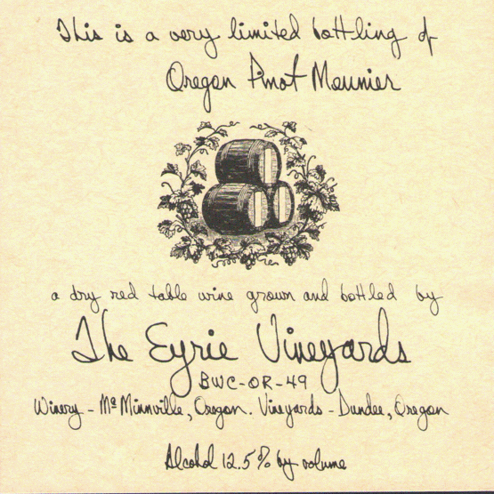 This is a very limited bottling of
Oregon Pinot Meunier
a dry red table wine grown and bottled by
The Eyrie Vineyards
BWC-OR-49
Winery - McMinnville, Oregon. Vineyards - Dundee, Oregon
Alcohol 12.5% by volume